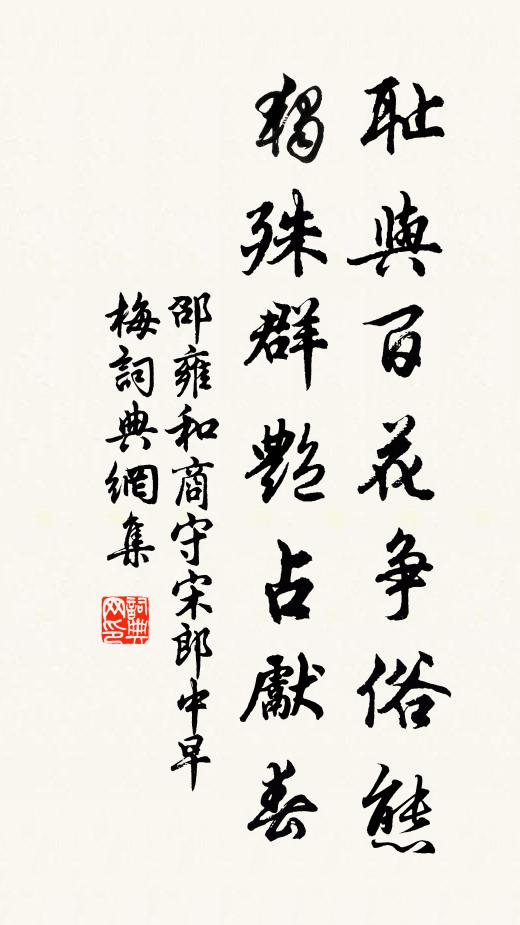 耻與百花争俗態
獨殊群艷占獻春
邵雍和商守宋郎中早
梅詞典網集
詞典网印